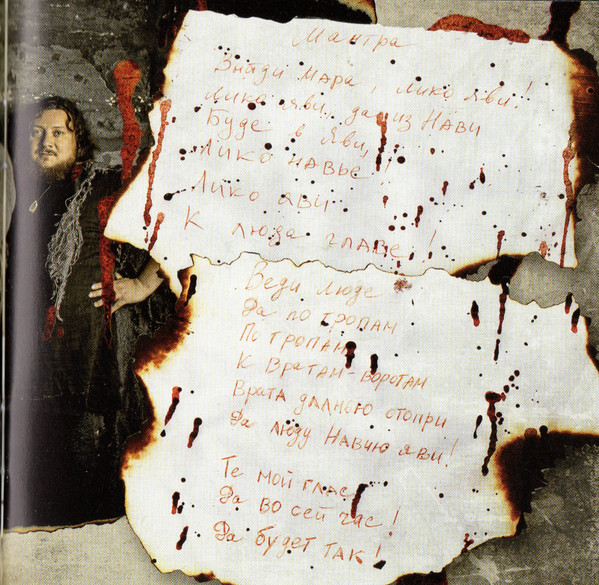 Мантра
Знйди Мара, Лико яви!
Лико яви, да из Нави
Буде в Яви,
Лико навье!
Лико яви
К люда главе!
Веди люде
Да по тропам
По тропам
К Вратам-воротам
Врата дланою отопри
Да люду Навию яви!
Те мой глас
Да во сей час!
Да будет так!